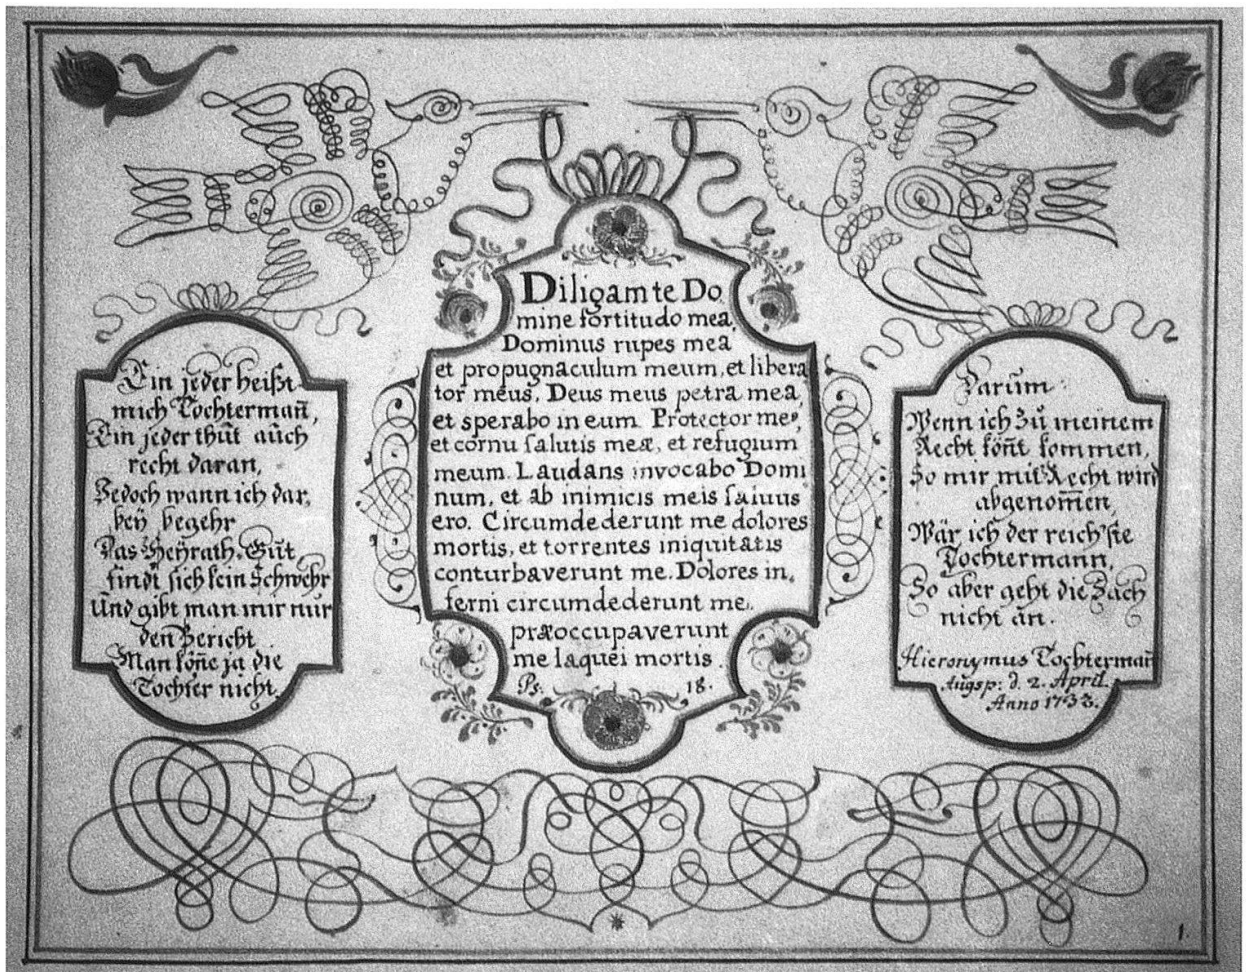 Ein jeder heißt
mich Tochterman̄,
Ein jeder thut auch
recht daran,
Jedoch wann ich dar,
beÿ begehr
Das Heÿrath, Gut,
findt sich kein Schwehr
Und gibt man mir nur
den Bericht
Man kön̄e ja die
Tochter nicht.
Diligam te Do
mine fortitudo mea,
Dominus rupes mea
et propugnaculum meum, et libera
tor meus, Deus meus petra mea,
et sperabo in eum. Protector me9,
et cornu ſalutis meæ, et refugium
meum. Laudans invocabo Domi
num, et ab inimicis meis ſaluus
ero. Circumdederunt me dolores
mortis, et torrentes iniquitatis
conturbaverunt me. Dolores in,
ferni circumdederunt me.
præoccupaverunt
me laquei mortis.
Ps. 18.
Darum
Wenn ich zu meinem
Recht kön̄t kommen,
So mir mit Recht wird
abgenom̄en,
Wär ich der reich'ste
Tochtermann,
So aber geht die Sach
nicht an.
Hieronymus Tochterman̄
Augsp: d. 2. April.
Anno 1733.
1.